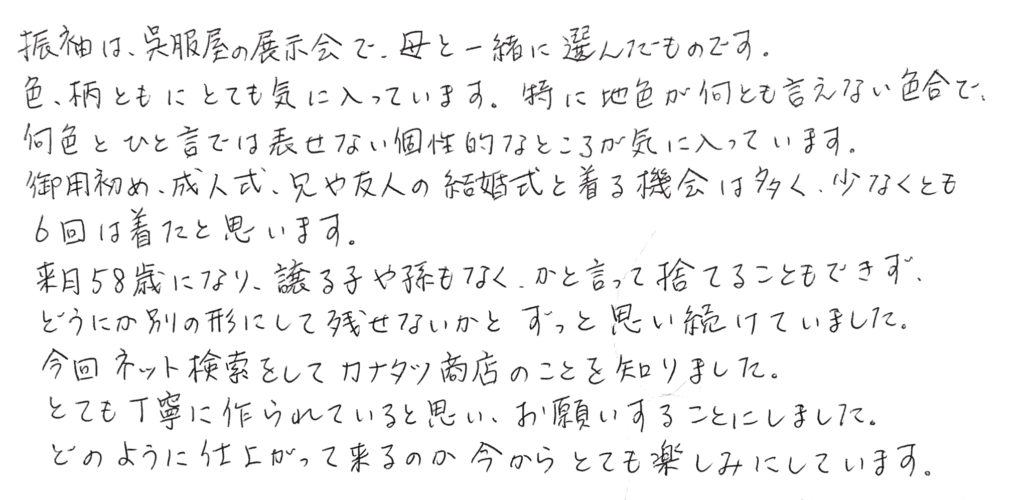 振袖は、呉服屋の展示会で、母と一緒に選んだものです。
色、柄ともにとても気に入っています。特に地色が何とも言えない色合で、
何色とひと言では表せない個性的なところが気に入っています。
御用初め、成人式、兄や友人の結婚式と着る機会は多く、少なくとも
6回は着たと思います。
来月58歳になり、譲る子や孫もなく、かと言って捨てることもできず、
どうにか別の形にして残せないかとずっと思い続けていました。
今回ネット検索をしてカナタツ商店のことを知りました。
とても丁寧に作られていると思い、お願いすることにしました。
どのように仕上がって来るのか今からとても楽しみにしています。